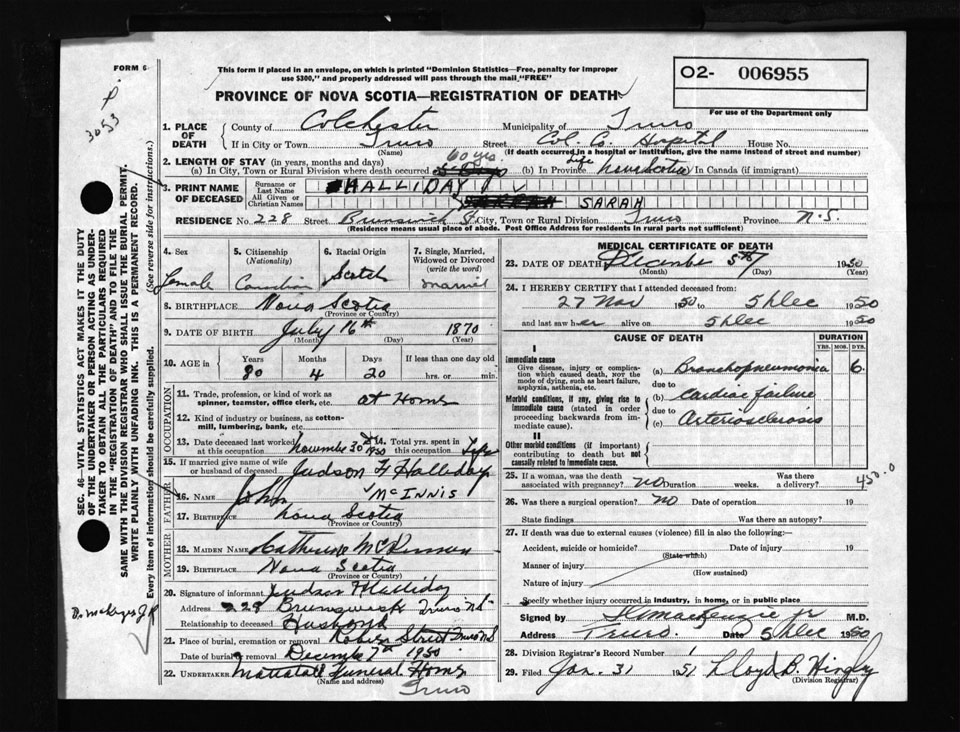 FORM 6
This form if placed in an envelope, on which is printed "Dominion Statistics—Free, penalty for improper
use $300," and properly addressed will pass through the mail "FREE"
O2- 006955
For use of the Department only
PROVINCE OF NOVA SCOTIA—REGISTRATION OF DEATH
3053
SEC. 46—VITAL STATISTICS ACT MAKES IT THE DUTY
OF THE UNDERTAKER OR PERSON ACTING AS UNDER-
TAKER TO OBTAIN ALL THE PARTICULARS REQUIRED
IN THE "REGISTRATION OF DEATH" AND TO FILE THE
SAME WITH THE DIVISION REGISTRAR WHO SHALL ISSUE THE BURIAL PERMIT.
WRITE PLAINLY WITH UNFADING INK. THIS IS A PERMANENT RECORD.
Every item of information should be carefully supplied. (See reverse side for instructions.)
1. PLACE OF DEATH County of Colchester Municipality of Truro
If in City or Town Truro Street Col. Co. Hospital House No.
(Name) (If death occurred in a hospital or institution, give the name instead of street and number)
2. LENGTH OF STAY (in years, months and days) 60 yrs. Life
(a) In City, Town or Rural Division where death occurred (b) In Province Nova Scotia In Canada (if immigrant)
3. PRINT NAME OF DECEASED Surname or Last Name HALLIDAY
All Given or Christian Names SARAH
RESIDENCE No. 228 Street Brunswick St City, Town or Rural Division Truro Province N.S.
(Residence means usual place of abode. Post Office Address for residents in rural parts not sufficient)
4. Sex 5. Citizenship (Nationality) 6. Racial Origin 7. Single, Married, Widowed or Divorced (write the word)
Female Canadian Scotch Married
8. BIRTHPLACE Nova Scotia
(Province or Country)
9. DATE OF BIRTH July 16th 1870
(Month) (Day) (Year)
10. AGE in Years Months Days If less than one day old
80 4 20 hrs. or min.
OCCUPATION
11. Trade, profession, or kind of work as spinner, teamster, office clerk, etc. at Home
12. Kind of industry or business, as cotton-mill, lumbering, bank, etc.
13. Date deceased last worked at this occupation November 30 1950 14. Total yrs. spent in this occupation Life
15. If married give name of wife or husband of deceased Judson F Halliday
FATHER
16. Name John McINNIS
17. Birthplace Nova Scotia
(Province or Country)
MOTHER
18. MAIDEN NAME Catherine
19. BIRTHPLACE Nova Scotia
(Province or Country)
20. Signature of informant Judson F Halliday
Address 228 Brunswick Truro NS
Relationship to deceased Husband
21. Place of burial, cremation or removal Robie Street Truro NS
Date of burial or removal December 7th 1950
22. UNDERTAKER Mattatall Funeral Home
(Name and address)
Truro
MEDICAL CERTIFICATE OF DEATH
23. DATE OF DEATH December 5th 1950
(Month) (Day) (Year)
24. I HEREBY CERTIFY that I attended deceased from:
27 Nov 1950 to 5th Dec 1950
and last saw her alive on 5th Dec 1950
CAUSE OF DEATH DURATION
YRS. MOS. DYS.
I
Immediate cause
Give disease, injury or complication which caused death, NOT the mode of dying, such as heart failure, asphyxia, asthenia, etc.
(a) Bronchopneumonia 6
due to
Morbid conditions, if any, giving rise to immediate cause (stated in order proceeding backwards from immediate cause).
(b) Cardiac failure
due to
(c) Arteriosclerosis
II
Other morbid conditions (if important) contributing to death but not causally related to immediate cause.
25. If a woman, was the death associated with pregnancy? NO Duration weeks. Was there a delivery?
450.0
26. Was there a surgical operation? NO Date of operation 19
State findings Was there an autopsy?
27. If death was due to external causes (violence) fill in also the following:—
Accident, suicide or homicide? Date of injury 19
(State which)
Manner of injury
(How sustained)
Nature of injury
Specify whether injury occurred in industry, in home, or in public place
Signed by D. MacKenzie Jr M.D.
Address Truro. Date 5th Dec 1950
28. Division Registrar's Record Number 1
29. Filed Jan. 31 1951 Lloyd B.
(Division Registrar)